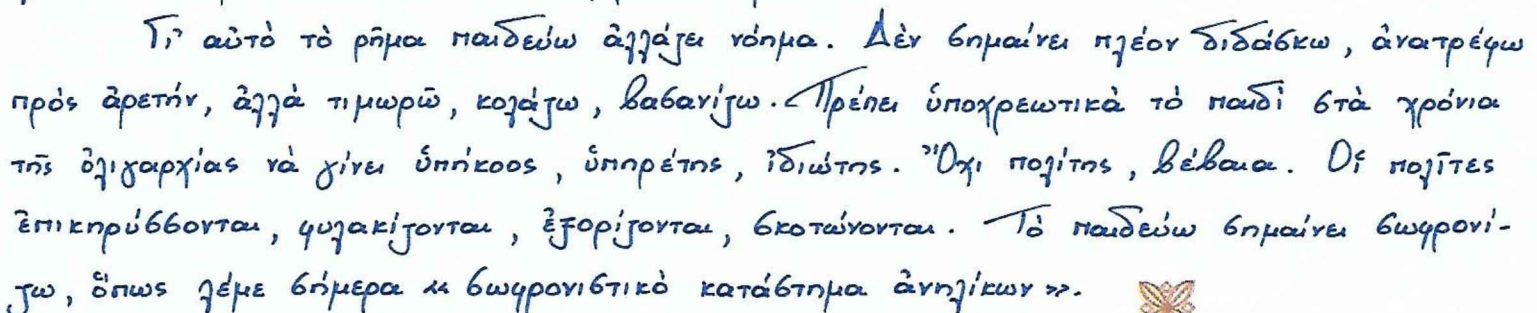 Γι' αὐτὸ τὸ ρῆμα παιδεύω ἀλλάζει νόημα. Δὲν σημαίνει πλέον διδάσκω, ἀνατρέφω
πρὸς ἀρετήν, ἀλλὰ τιμωρῶ, κολάζω, βασανίζω. Πρέπει ὑποχρεωτικὰ τὸ παιδὶ στὰ χρόνια
τῆς ὀλιγαρχίας νὰ γίνει ὑπήκοος, ὑπηρέτης, ἰδιώτης. Ὄχι πολίτης, βέβαια. Οἱ πολῖτες
ἐπικηρύσσονται, φυλακίζονται, ἐξορίζονται, σκοτώνονται. Τὸ παιδεύω σημαίνει σωφρονί-
ζω, ὅπως λέμε σήμερα «σωφρονιστικὸ κατάστημα ἀνηλίκων».